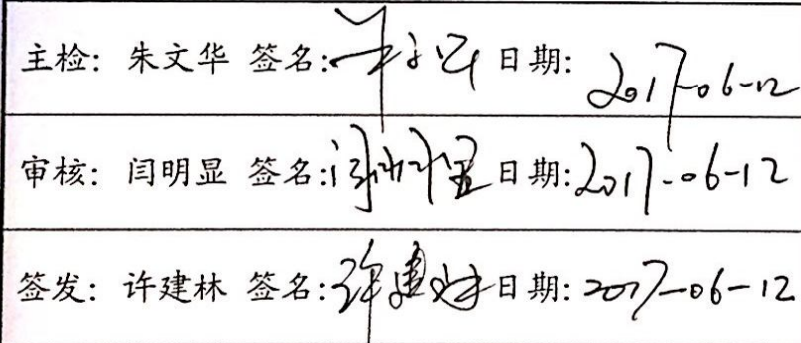 主检：朱文华 签名：日期：2017-06-12
审核：闫明显 签名：闫明显 日期：2017-06-12
签发：许建林 签名：许建林 日期：2017-06-12